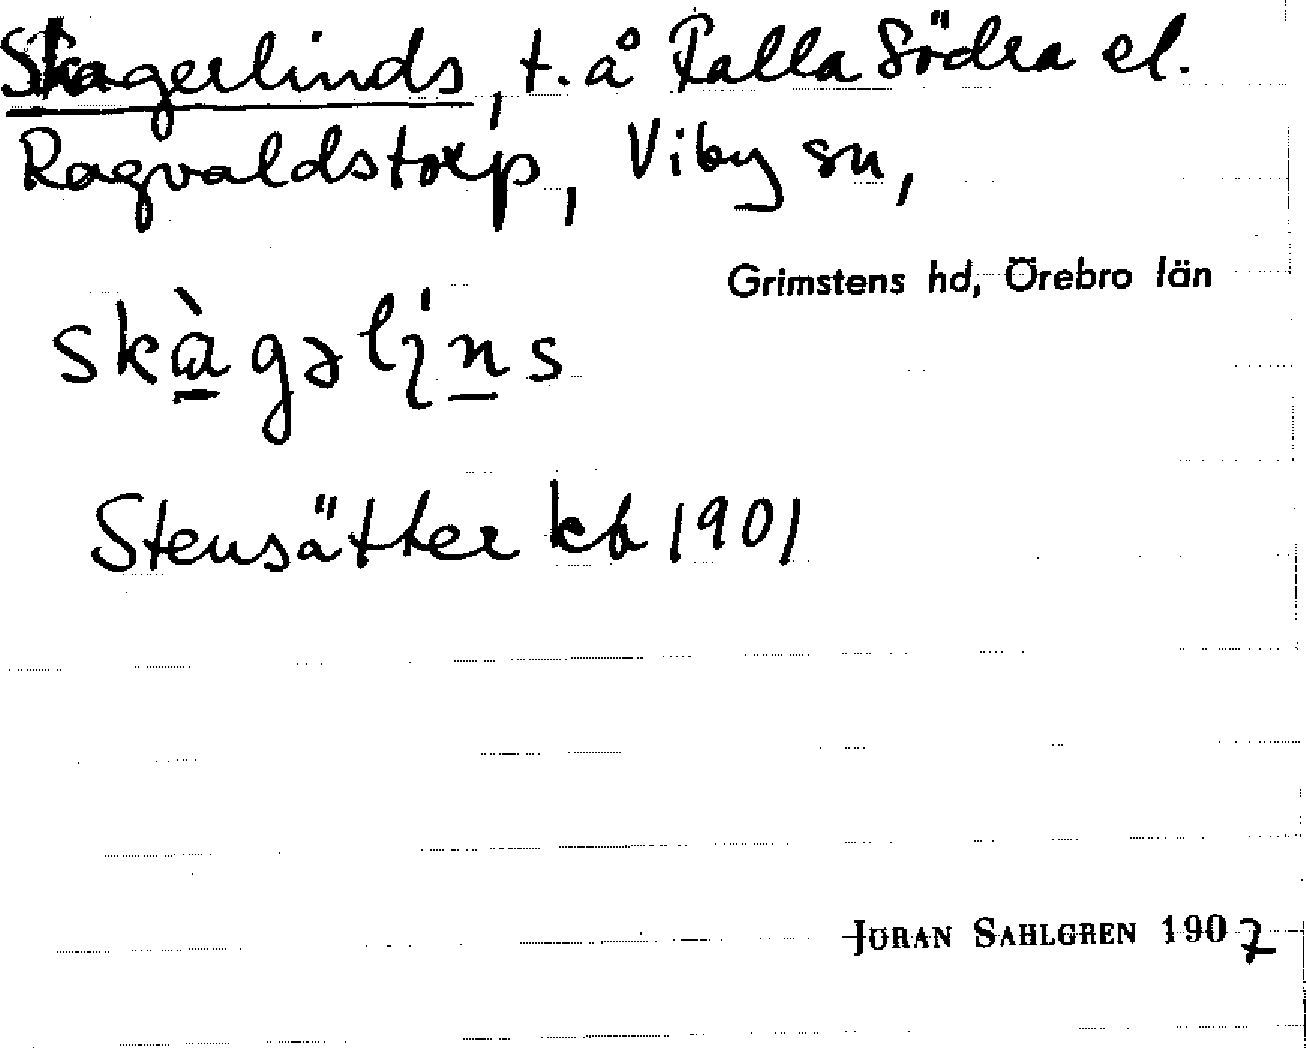 Skagerlinds, t. å Falla Södra el.
Ragvaldstorp, Viby sn,
Grimstens hd, Örebro län
skàgəlins
Stensätter kb 1901
JÖRAN SAHLGREN 1907